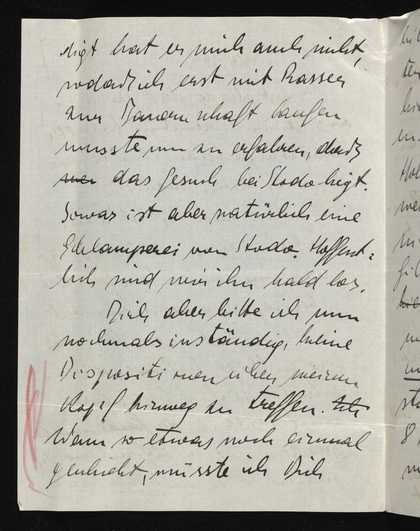 digt hat er mich auch nicht,
sodass ich erst mit Rasser
zur Bauernschaft laufen
musste um zu erfahren, dass
das Gesuch bei Stodo liegt.
Sowas ist aber natürlich eine
Schlamperei von Stodo. Hoffent=
lich sind wir ihn bald los.
Dich aber bitte ich nun
nochmals inständig, keine
Dispositionen über meinen
Kopf hinweg zu treffen.
Wenn so etwas noch einmal
geschieht, müsste ich Dich